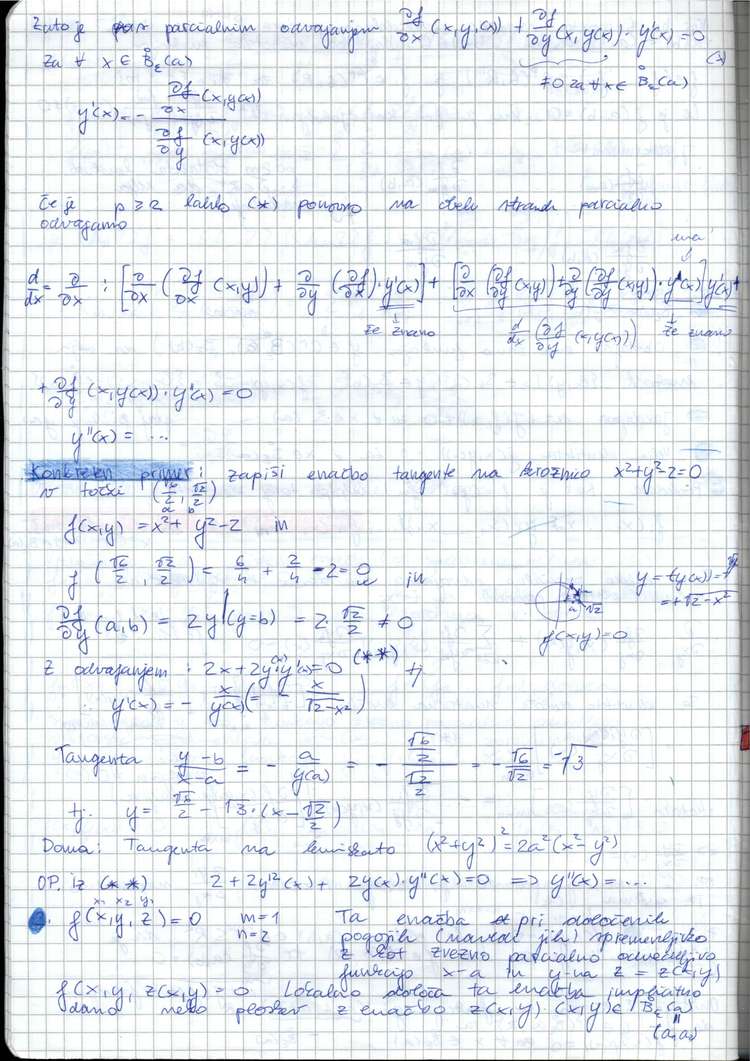 Zato je parcialnim odvajanjem ∂f/∂x (x,y(x)) + ∂f/∂y (x,y(x)) · y'(x) = 0
za ∀ x ∈ B̊ε(a)
≠ 0 za ∀ x ∈ B̊ε(a)
y'(x) = - (∂f/∂x (x,y(x))) / (∂f/∂y (x,y(x)))
Če je p ≥ 2 lahko (*) ponovno na obeh straneh parcialno
odvajamo
d/dx = ∂/∂x : [∂/∂x (∂f/∂x (x,y)) + ∂/∂y (∂f/∂x) · y'(x)] + [∂/∂x (∂f/∂y (x,y)) + ∂/∂y (∂f/∂y (x,y)) · y'(x)] y'(x) +
že znano d/dx (∂f/∂y (x,y(x))) že znano
+ ∂f/∂y (x,y(x)) · y''(x) = 0
y''(x) = ...
Konkreten primer: zapiši enačbo tangente na krožnico x²+y²-2=0
v točki (√6/2, √2/2)
a b
f(x,y) = x²+y²-2 in
f (√6/2, √2/2) = 6/4 + 2/4 - 2 = 0 in
∂f/∂y (a,b) = 2y|(y=b) = 2·√2/2 ≠ 0
= +√2-x²
f(x,y)=0
Z odvajanjem: 2x + 2y(x)y'(x) = 0 (**) tj
y'(x) = - x/y(x) (= - x/√2-x²)
Tangenta (y-b)/(x-a) = - a/y(a) = - (√6/2)/(√2/2) = - √6/√2 = -√3
tj. y = √6/2 - √3·(x - √2/2)
Doma: Tangenta na lemniskato (x²+y²)² = 2a²(x²-y²)
OP. iz (**) 2 + 2y'²(x) + 2y(x)·y''(x) = 0 => y''(x) = ...
x₁ x₂ y₁
2. f(x,y,z) = 0 m=1 Ta enačba pri določenih
n=2 pogojih (navedi jih) spremenljivko
z kot zvezno parcialno odvedljivo
funkcijo x-a in y-na z = z(x,y)
f(x,y,z(x,y)) = 0 Lokalno določa ta enačba implicitno
dano neko ploskev z enačbo z(x,y) (x,y) ∈ B̊ε(a)
(a₁,a₂)